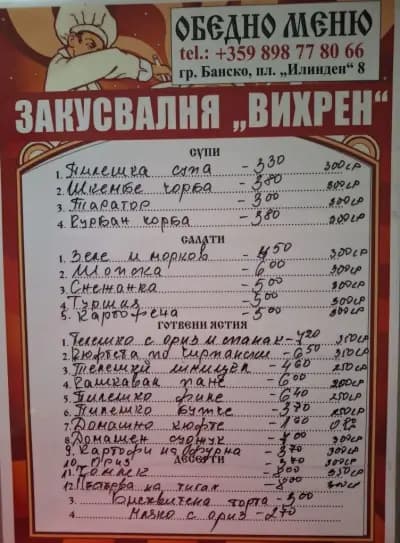 ОБЕДНО МЕНЮ
tel.: +359 898 77 80 66
гр. Банско, пл. „Илинден“ 8
ЗАКУСВАЛНЯ „ВИХРЕН“
СУПИ
1. Пилешка супа - 3³⁰ 300гр
2. Шкембе чорба - 3⁸⁰ 300гр
3. Таратор - 3⁰⁰ 300гр
4. Курбан чорба - 3⁸⁰ 300гр
САЛАТИ
1. Зеле и морков - 4⁵⁰ 300гр
2. Шопска - 6⁰⁰ 300гр
3. Снежанка - 5⁰⁰ 300гр
4. Туршия - 5⁰⁰ 300гр
5. Картофена - 5⁰⁰ 300гр
ГОТВЕНИ ЯСТИЯ
1. Телешко с ориз и спанак - 7²⁰ 350гр
2. Кюфтета по чирпански - 6⁵⁰ 350гр
3. Телешки шницел - 4⁶⁰ 250гр
4. Кашкавал пане - 6⁰⁰ 200гр
5. Пилешко филе - 6⁴⁰ 250гр
6. Пилешко бутче - 3⁷⁰ 250гр
7. Домашно кюфте
8. Домашен суджук 300гр
9. Картофи на фурна - 3⁷⁰ 300гр
10. Ориз - 3⁷⁰ 300гр
ДЕСЕРТИ
11. 350гр
12. Пъстърва на тиган 300гр
3. Бисквитена торта - 3⁰⁰
4. Мляко с ориз - 2⁷⁰